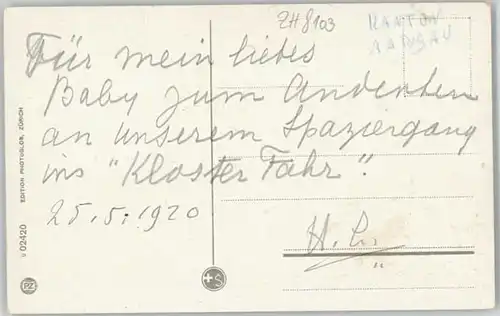 ZH8103
KANTON
AARGAU
Für mein liebes
Baby zum Andenken
an unserem Spaziergang
ins "Kloster Fahr".
25.5.1920
H.
EDITION PHOTOGLOB, ZÜRICH
02420
PZ